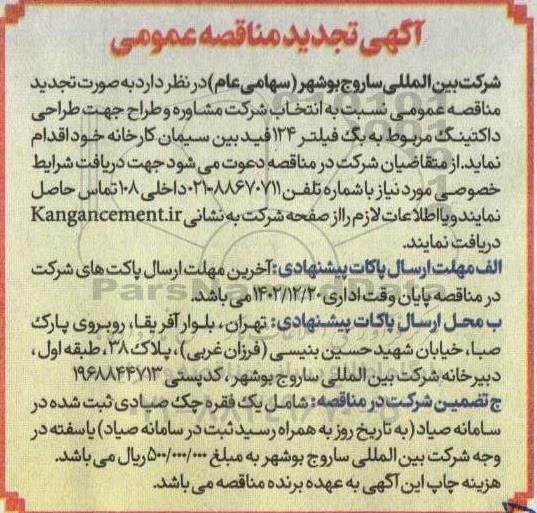 آگهی تجدید مناقصه عمومی
شرکت بین المللی ساروج بوشهر (سهامی عام) در نظر دارد به صورت تجدید
مناقصه عمومی نسبت به انتخاب شرکت مشاوره و طراح جهت طراحی
داکتینگ مربوط به بگ فیلتر ۱۲۴ فید بین سیمان کارخانه خود اقدام
نماید. از متقاضیان شرکت در مناقصه دعوت می شود جهت دریافت شرایط
خصوصی مورد نیاز با شماره تلفن ۰۲۱-۸۸۶۷۰۷۱۱ داخلی ۱۰۸ تماس حاصل
نمایند و یا اطلاعات لازم را از صفحه شرکت به نشانی Kangancement.ir
دریافت نمایند.
الف مهلت ارسال پاکات پیشنهادی: آخرین مهلت ارسال پاکت های شرکت
در مناقصه پایان وقت اداری ۱۴۰۲/۱۲/۲۰ می باشد.
ب محل ارسال پاکات پیشنهادی: تهران، بلوار آفریقا، روبروی پارک
صبا، خیابان شهید حسین بنیسی (فرزان غربی)، پلاک ۳۸، طبقه اول،
دبیرخانه شرکت بین المللی ساروج بوشهر، کدپستی ۱۹۶۸۸۴۴۷۱۳
ج تضمین شرکت در مناقصه: شامل یک فقره چک صیادی ثبت شده در
سامانه صیاد (به تاریخ روز به همراه رسید ثبت در سامانه صیاد) یا سفته در
وجه شرکت بین المللی ساروج بوشهر به مبلغ ۵۰۰/۰۰۰/۰۰۰ ریال می باشد.
هزینه چاپ این آگهی به عهده برنده مناقصه می باشد.
ParsNamadData